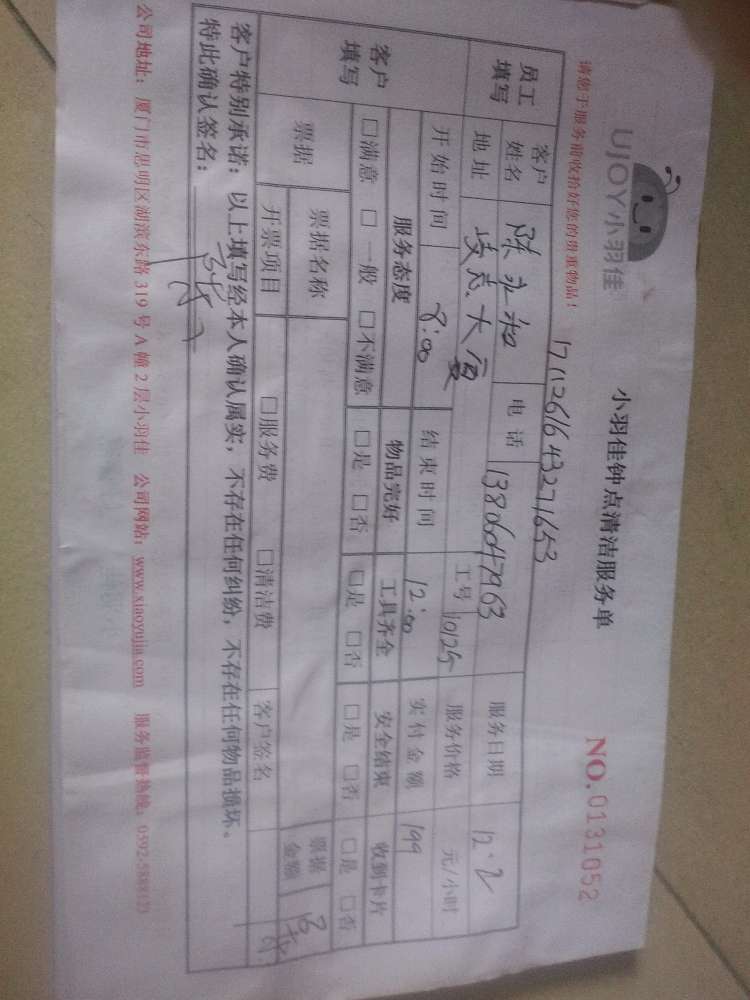 UJOY小羽佳
小羽佳钟点清洁服务单
NO.0131052
请您于服务前收拾好您的贵重物品!
1711261643271653
员工填写 客户姓名 陈 电话 13806047963 服务日期 12.2
地址 大厦 工号 10125 服务价格 元/小时
客户填写 开始时间 8:00 结束时间 12:00 实付金额 199
服务态度 物品完好 工具齐全 安全结束 收到卡片
□满意 □一般 □不满意 □是 □否 □是 □否 □是 □否 □是 □否
票据 票据名称 票据金额
开票项目 □服务费 □清洁费 客户签名
客户特别承诺:以上填写经本人确认属实,不存在任何纠纷,不存在任何物品损坏。
特此确认签名:
公司地址:厦门市思明区湖滨东路 319 号 A 幢 2 层小羽佳 公司网站:www.xiaoyujia.com 服务监督热线: